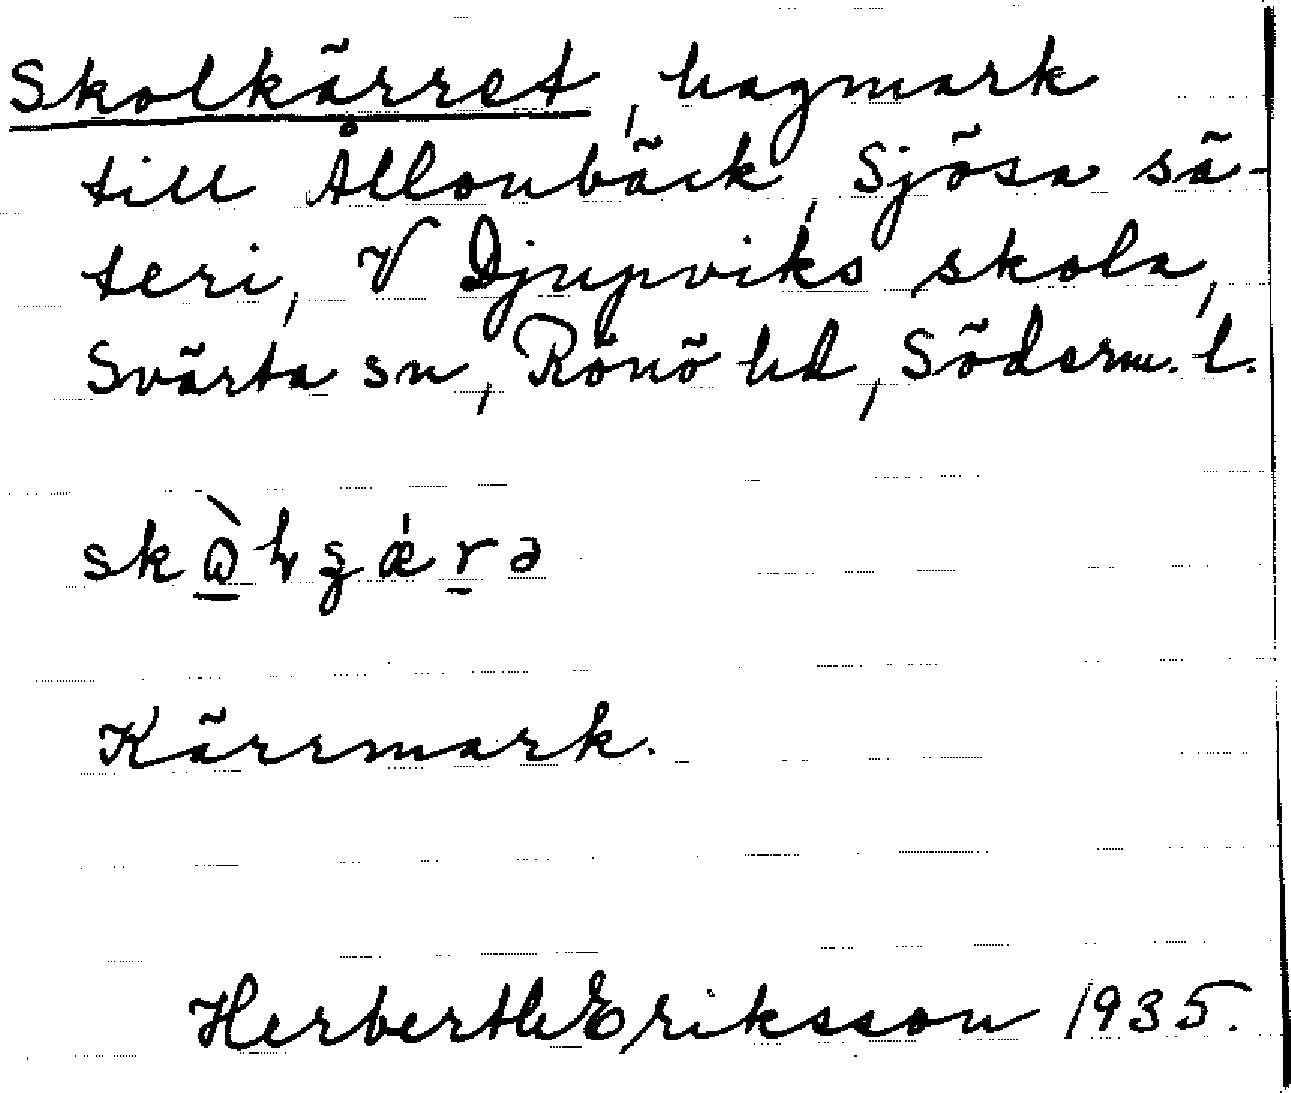 Skolkärret, hagmark
till Ållonbäck, Sjösa sä-
teri, V Djupviks skola,
Svärta sn, Rönö hd, Söderm. l.
Kärrmark.
Herberth Eriksson 1935.